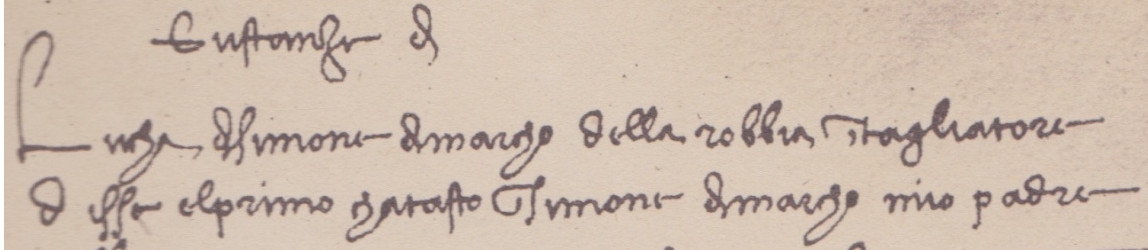 Sustanze d
Lucha dsimone dimarcho della robbia Itagliatore
d esse elprimo chatasto Simone dimarcho mio padre